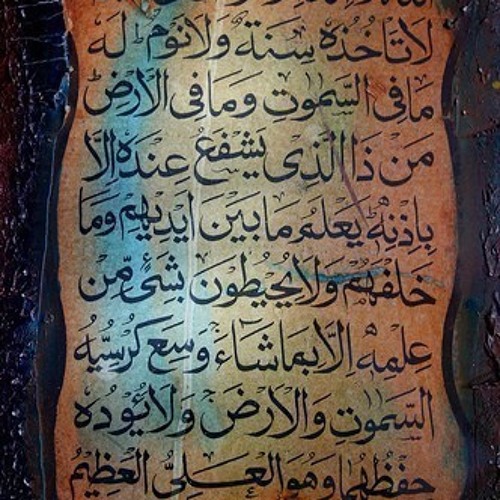 لَا تَاْخُذُهٗ سِنَةٌ وَّلَا نَوْمٌ ؕ لَهٗ
مَا فِی السَّمٰوٰتِ وَمَا فِی الْاَرْضِ ؕ
مَنْ ذَا الَّذِیْ یَشْفَعُ عِنْدَهٗ اِلَّا
بِاِذْنِهٖ ؕ یَعْلَمُ مَا بَیْنَ اَیْدِیْهِمْ وَمَا
خَلْفَهُمْ وَلَا یُحِیْطُوْنَ بِشَیْءٍ مِّنْ
عِلْمِهٖ اِلَّا بِمَا شَآءَ وَسِعَ كُرْسِیُّهُ
السَّمٰوٰتِ وَالْاَرْضَ وَلَا یَـُٔوْدُهٗ
حِفْظُهُمَا وَهُوَ الْعَلِیُّ الْعَظِیْمُ